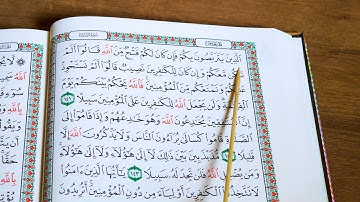 ٱلَّذِينَ يَتَرَبَّصُونَ بِكُمْ فَإِن كَانَ لَكُمْ فَتْحٌ مِّنَ ٱللَّهِ قَالُوٓا۟ أَلَمْ
نَكُن مَّعَكُمْ وَإِن كَانَ لِلْكَٰفِرِينَ نَصِيبٌ قَالُوٓا۟ أَلَمْ نَسْتَحْوِذْ
عَلَيْكُمْ وَنَمْنَعْكُم مِّنَ ٱلْمُؤْمِنِينَ فَٱللَّهُ يَحْكُمُ بَيْنَكُمْ يَوْمَ
ٱلْقِيَٰمَةِ وَلَن يَجْعَلَ ٱللَّهُ لِلْكَٰفِرِينَ عَلَى ٱلْمُؤْمِنِينَ سَبِيلًا ١٤١
إِنَّ ٱلْمُنَٰفِقِينَ يُخَٰدِعُونَ ٱللَّهَ وَهُوَ خَٰدِعُهُمْ وَإِذَا قَامُوٓا۟ إِلَى
ٱلصَّلَوٰةِ قَامُوا۟ كُسَالَىٰ يُرَآءُونَ ٱلنَّاسَ وَلَا يَذْكُرُونَ ٱللَّهَ إِلَّا
قَلِيلًا ١٤٢ مُّذَبْذَبِينَ بَيْنَ ذَٰلِكَ لَآ إِلَىٰ هَٰٓؤُلَآءِ وَلَآ إِلَىٰ هَٰٓؤُلَآءِ
وَمَن يُضْلِلِ ٱللَّهُ فَلَن تَجِدَ لَهُۥ سَبِيلًا ١٤٣ يَٰٓأَيُّهَا ٱلَّذِينَ ءَامَنُوا۟
لَا تَتَّخِذُوا۟ ٱلْكَٰفِرِينَ أَوْلِيَآءَ مِن دُونِ ٱلْمُؤْمِنِينَ أَتُرِيدُونَ